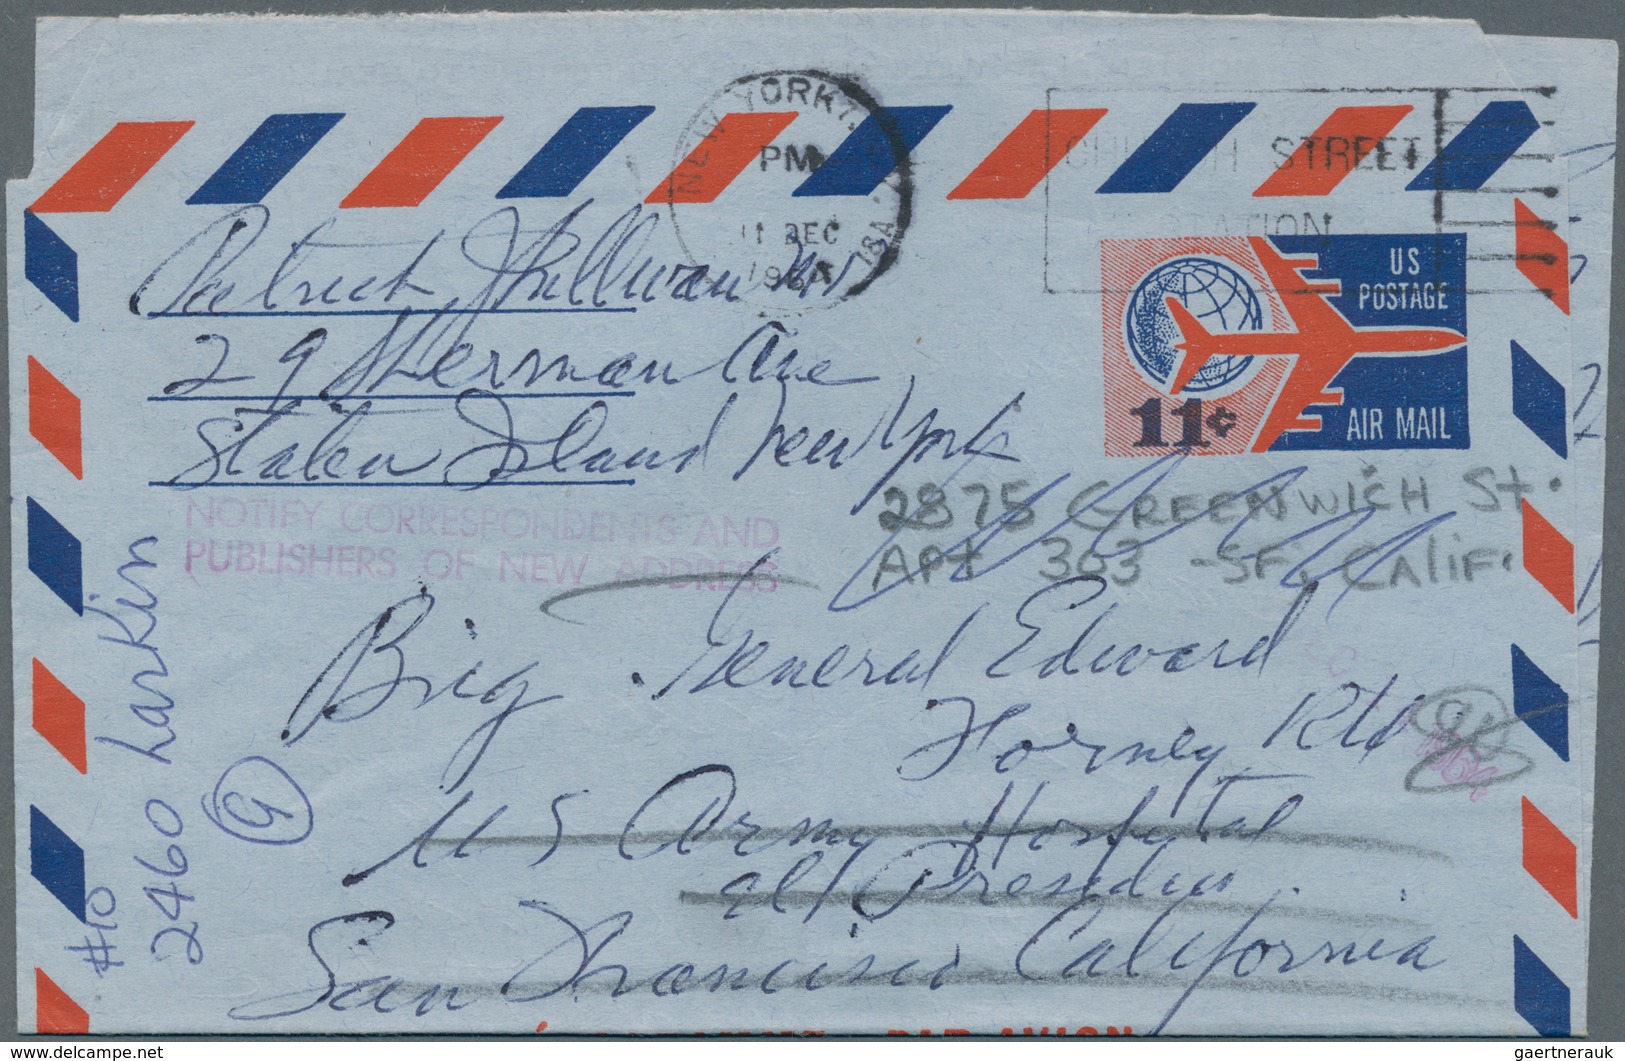 NEW YORK
PM
11 DEC
1964
CHURCH STREET
STATION
US
POSTAGE
11¢
AIR MAIL
Patrick Sullivan
29 Sherman Ave
Staten Island New York
NOTIFY CORRESPONDENTS AND
PUBLISHERS OF NEW ADDRESS
2875 GREENWICH St.
APt 303 -SF, CALiF.
Brig General Edward
Forney Rtd
US Army Hospital
at Presidio
San Francisco California
#10
2460 Larkin
PAR AVION
gaertnerauk